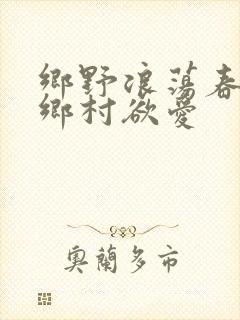 鄉野浪蕩春
鄉村欲愛
奧蘭多市